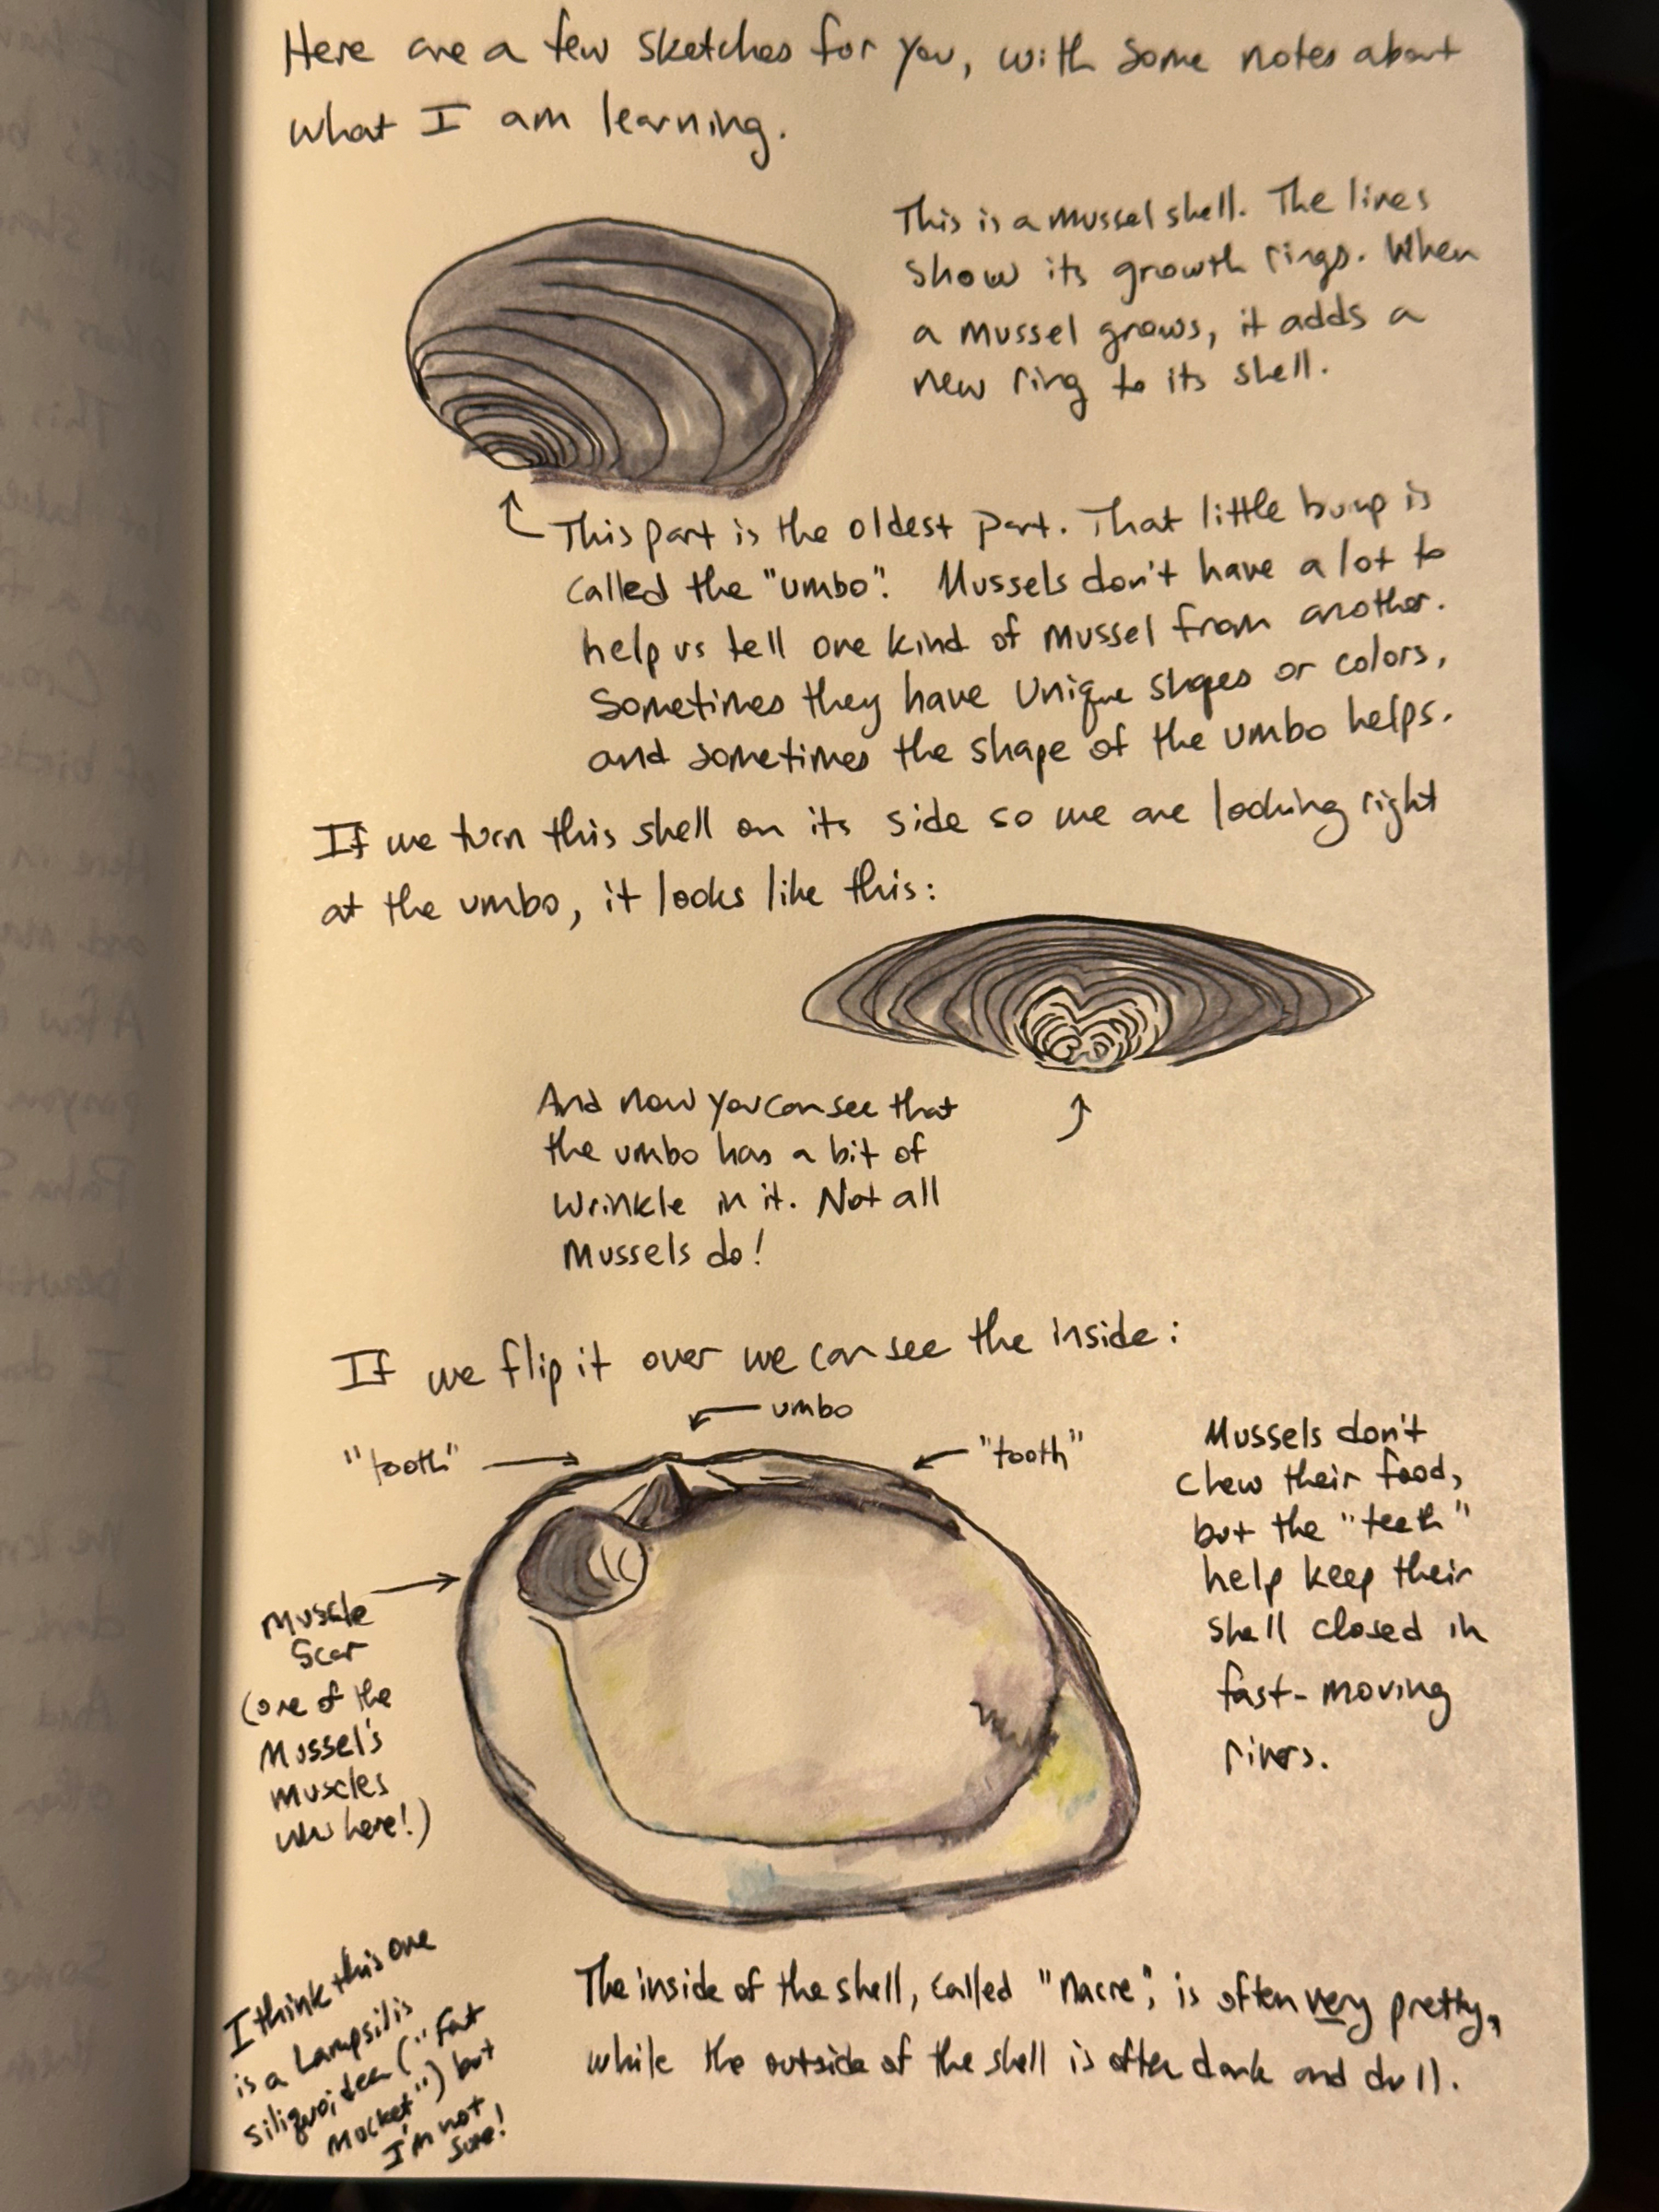 Here are a few sketches for you, with some notes about
what I am learning.
This is a mussel shell. The lines
show its growth rings. When
a mussel grows, it adds a
new ring to its shell.
This part is the oldest part. That little bump is
called the "umbo". Mussels don't have a lot to
help us tell one kind of mussel from another.
Sometimes they have unique shapes or colors,
and sometimes the shape of the umbo helps.
If we turn this shell on its side so we are looking right
at the umbo, it looks like this:
And now you can see that
the umbo has a bit of
wrinkle in it. Not all
mussels do!
If we flip it over we can see the inside:
umbo
"tooth"
"tooth"
Mussels don't
chew their food,
but the "teeth"
help keep their
shell closed in
fast-moving
rivers.
Muscle
Scar
(one of the
Mussel's
muscles
was here!)
I think this one
is a Lampsilis
siliquoidea ("Fat
Mucket") but
I'm not
sure!
The inside of the shell, called "nacre", is often very pretty,
while the outside of the shell is often dark and dull.